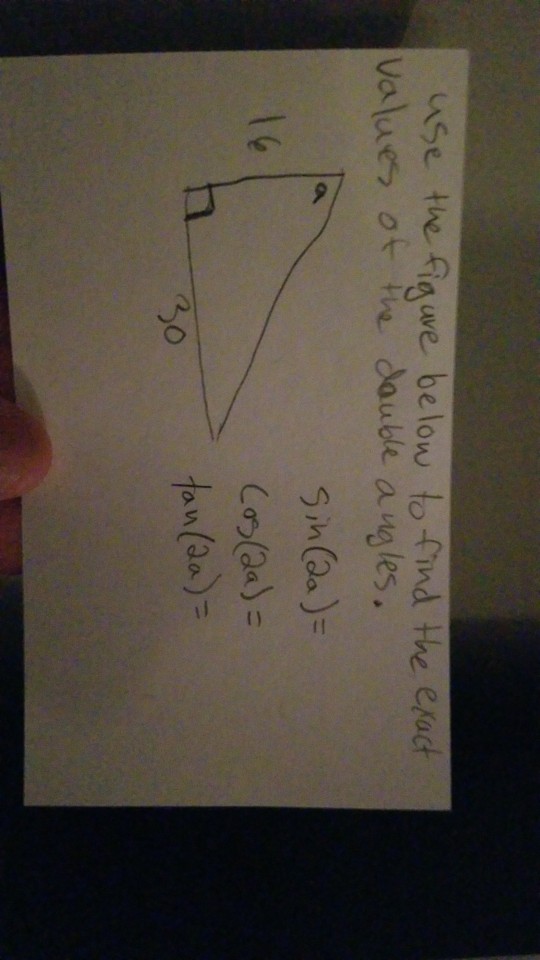 use the figure below to find the exact
values of the double angles.
a
16
30
sin(2a)=
cos(2a)=
tan(2a)=